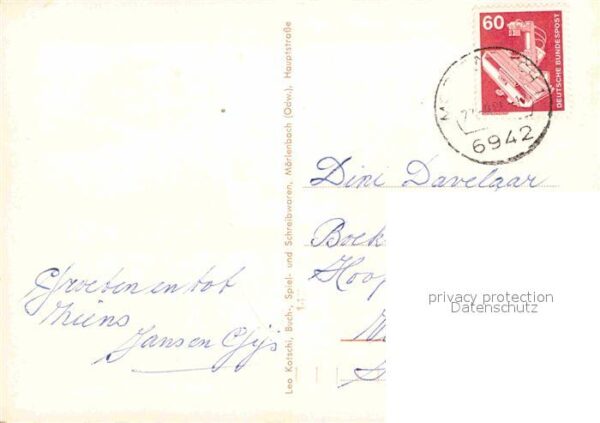 60
DEUTSCHE BUNDESPOST
6942
Leo Katschi, Buch-, Spiel- und Schreibwaren, Mörlenbach (Odw.), Hauptstraße
Dini Davelaar
Boek
Hoop
Groeten en tot
ziens
Jansen Gijs
privacy protection
Datenschutz